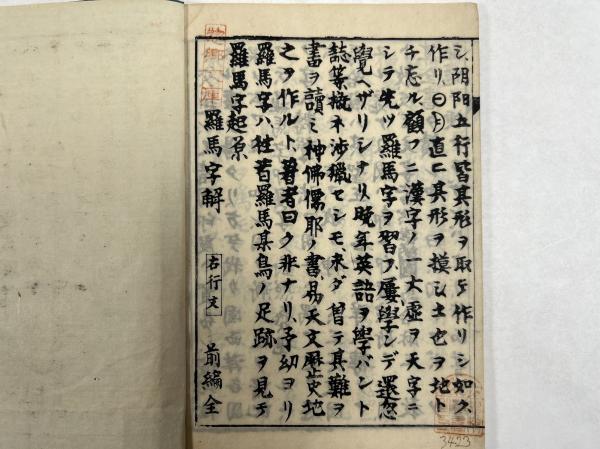 羅馬字解 右行文 前編全
羅馬字起原
羅馬字ハ往昔羅馬某鳥ノ足跡ヲ見テ
之ヲ作ルト、著者曰ク非ナリ、予幼ヨリ
書ヲ讀ミ神佛儒耶ノ書、易天文暦史地
誌等概ネ渉獵セシモ、未ダ曽テ其難ヲ
覺ヘザリシナリ晩年英語ヲ學バント
シテ先ヅ羅馬字ヲ習フ、屢學ンデ還忽
チ忘ル顧フニ漢字ノ一大虚ヲ天字ニ
作リ日月直ニ其形ヲ摸シ土也ヲ地ト
シ、阴阳五行皆其形ヲ取テ作リシ如ク
3423